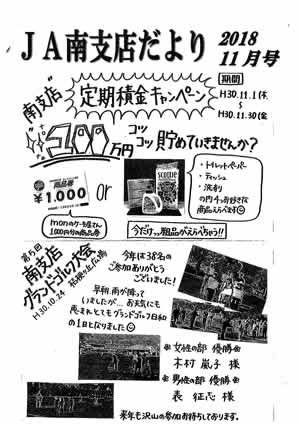 JA南支店だより 2018
11月号
"南支店"
定期積金キャンペーン
期間
H30.11.1(木)
~
H30.11.30(金)
100万円
コツ
コツ 貯めていきませんか?
商品券
¥1,000
or
scottie
・トイレットペーパー
・ティッシュ
・洗剤
の内1つお好きな
商品えらべます
monのケーキ屋さん
1000円分の商品券
今だけっ!!粗品がえらべちゃう!!
第5回
南支店
グランドゴルフ大会
H30.10.24
今年は38名の
ご参加ありがとう
ございました!
早朝、雨が降って
いましたが…お天気にも
恵まれ、とてもグランドゴルフ日和
の1日となりました
女性の部 優勝
木村 嵐子 様
男性の部 優勝
表 征志 様
来年も沢山の参加お待ちしております。